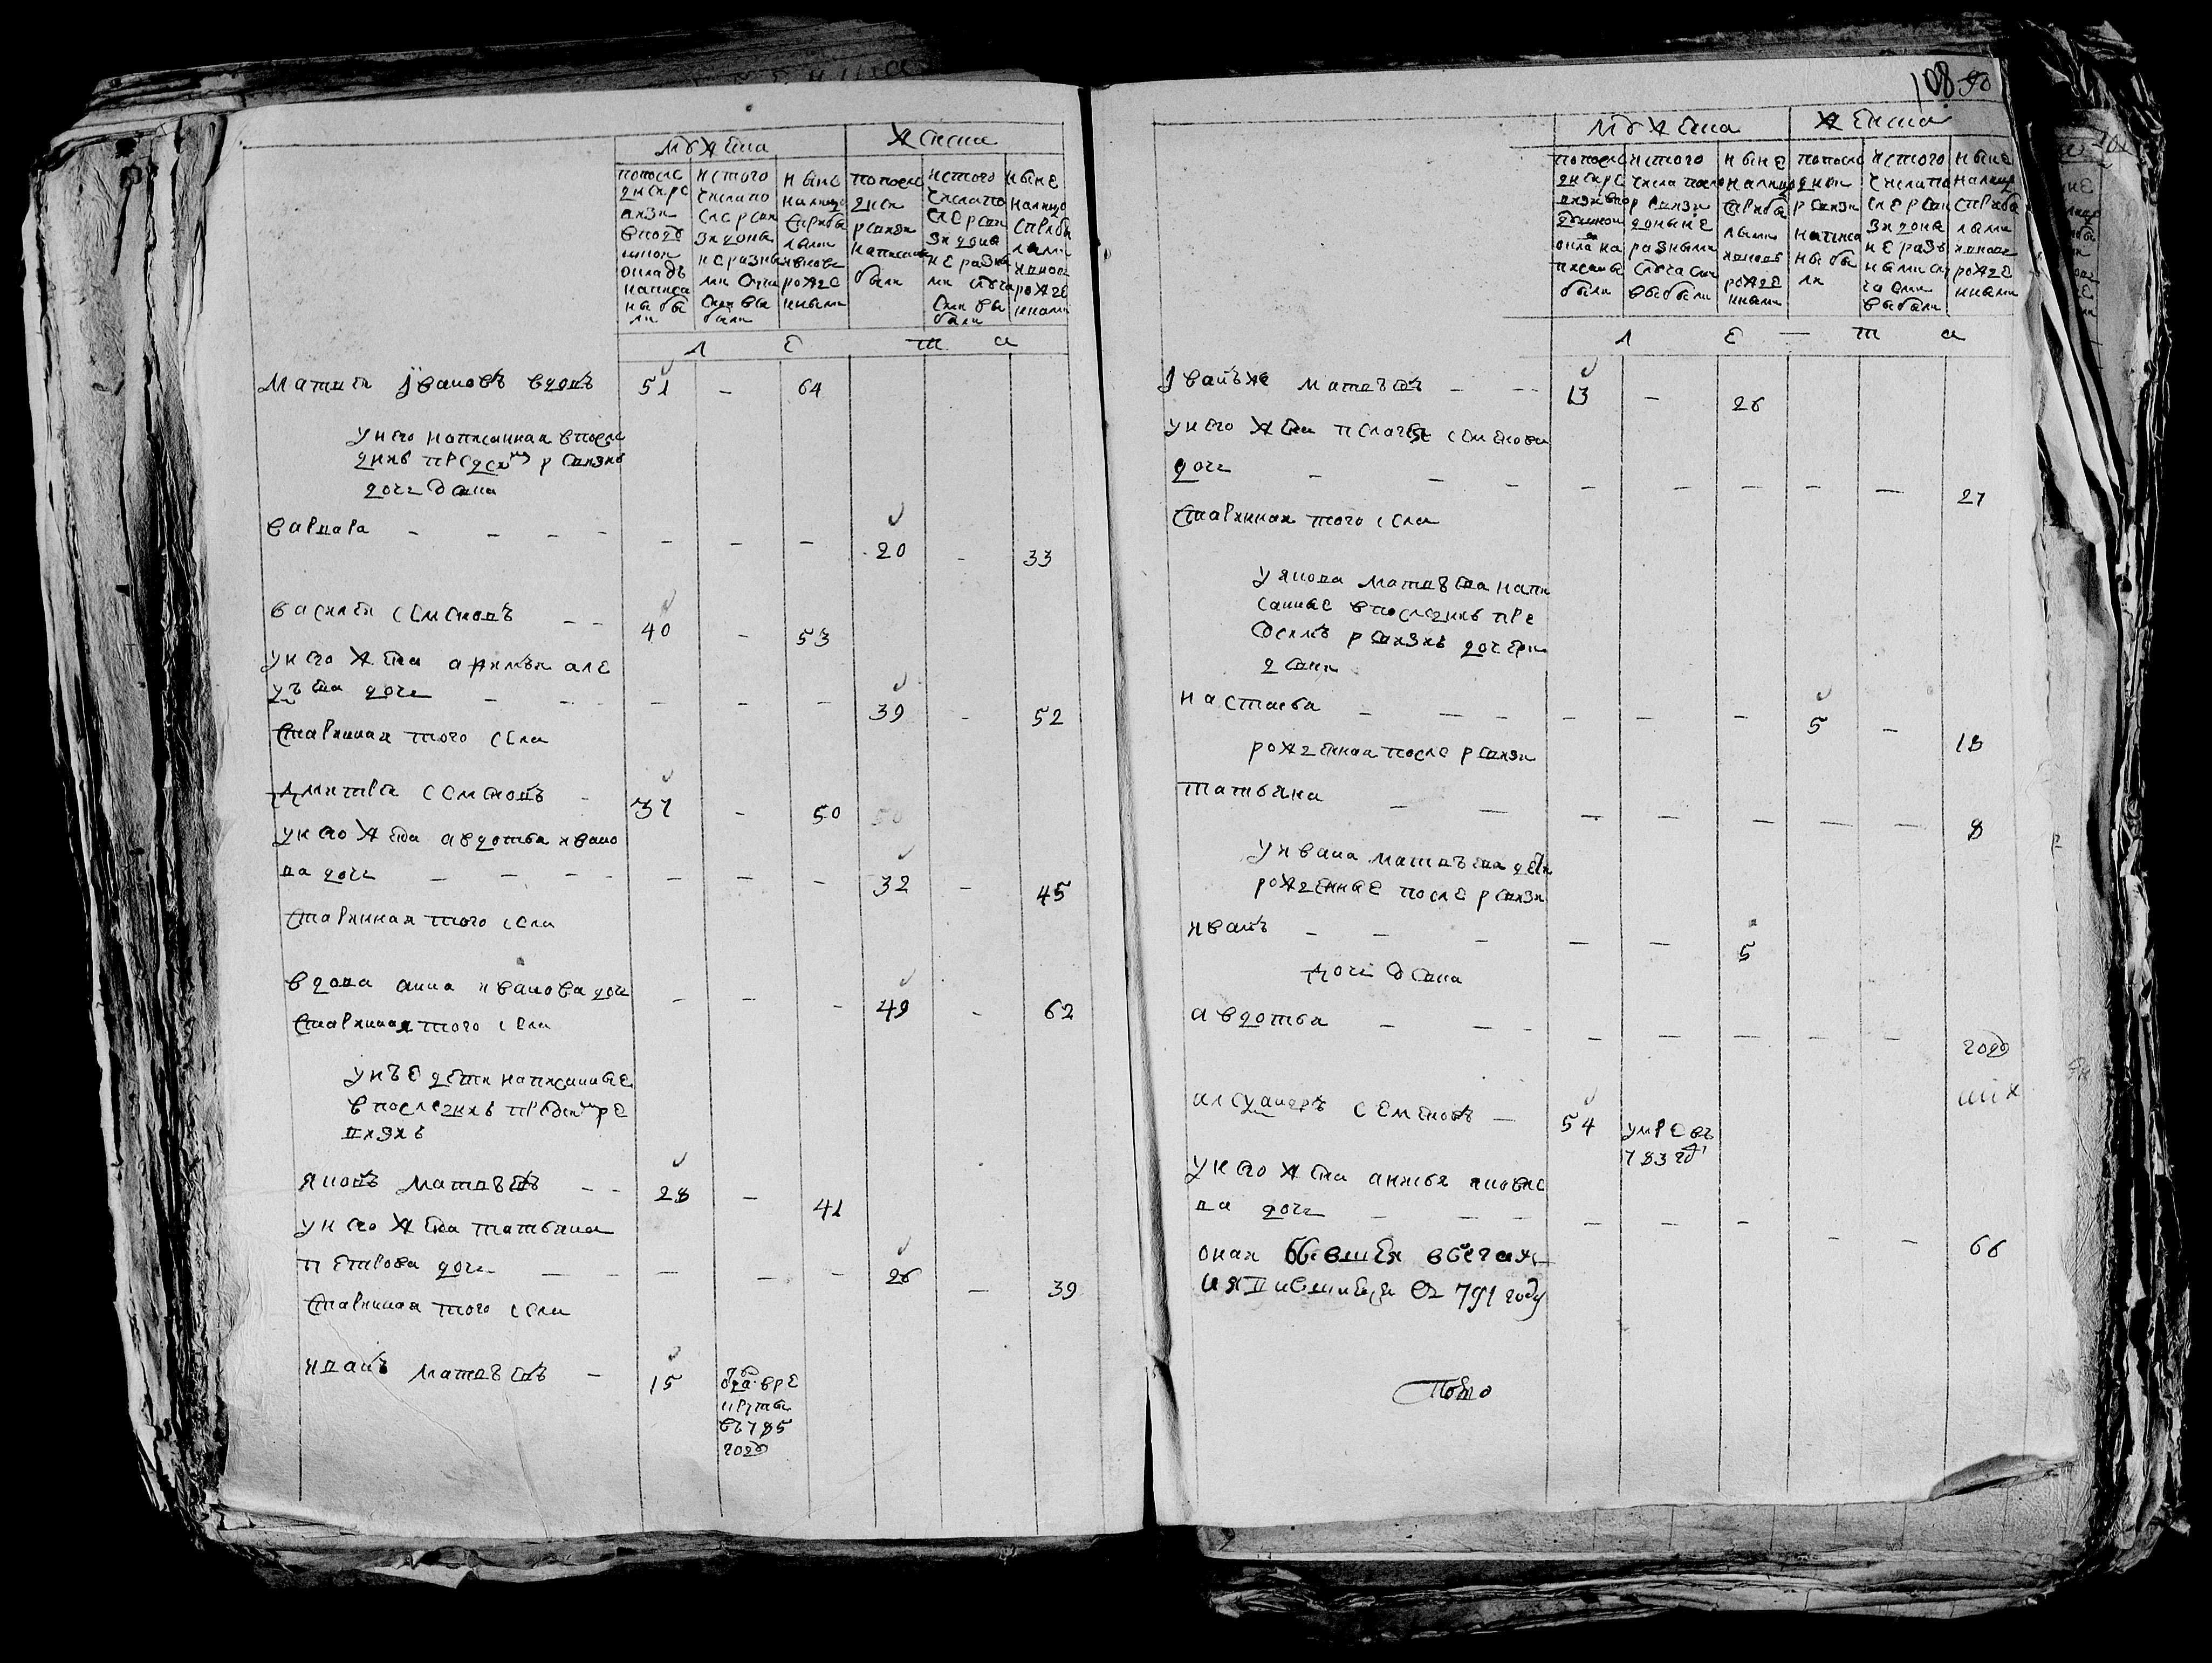 мужеска
женска
попосле
дней ре
визии
вподу
шной
окладъ
написа
ны бы
ли
истого
числапо
сле реви
зии доны
не разны
ми случа
еми вы
были
ныне
налицо
сприбы
лыми
ивновь
рожде
нными
попосле
дней
ревизии
написаны
были
истого
числапо
сле реви
зии доны
не разны
ми случа
еми вы
были
ныне
налицо
сприбы
лыми
ивновь
рожде
нными
л е т а
Матвей Ивановъ вдовъ 51 - 64
у него написанная впосле
днюю пред сим ревизию
дочь девка
варвара - - - - - - - 20 - 33
василей семеновъ - - 40 - 53
у него жена
дочь - - - - - 39 - 52
старинная того села
Дмитрей семеновъ - 37 - 50
у него жена авдотья ивано
ва дочь - - - - - - - 32 - 45
старинная того села
вдова анна иванова дочь - - - 49 - 62
старинная того села
у нъе дети написанные
впоследнюю пред сим ре
визию
яковъ матвъевъ - - 28 - 41
у него жена татьяна
петрова дочь - - - - - 26 - 39
старинная того села
иванъ матвъевъ - 15
отданъ в ре
круты
въ 785
году
108 90
мужеска
женска
попосле
дней ре
визии впо
душном
окла на
писаны
были
истого
числа посл
ревизии
доныне
разными
случаеми
выбыли
ныне
налицо
сприбы
лыми
ивновь
рожде
нными
попосле
дней
ревизии
написа
ны бы
ли
истого
числапо
сле реви
зии доны
не разъ
ными слу
чаеми
выбыли
ныне
налицо
сприбы
лыми
ивновь
рожде
нными
л е - т а
Иванъже матвъевъ - - - 13 - 26
у него жена пелагея семенова
дочь - - - - - - - - 27
старинная того села
у якова матвъева напи
санные впоследнюю пре
д сим ревизию дочери
девки
настасья - - - - - - 5 - 18
рожденная после ревизи
татьяна - - - - - - - 8
у ивана матвъева дети
рожденные после ревизи
иванъ - - - - - 5
дочь девка
авдотья - - - - - - - - году
54 умре въ
783 го
у него жена яковле
ва дочь - - - - - - - - 66
оная бывшея вбегах
явившияся въ 791 году